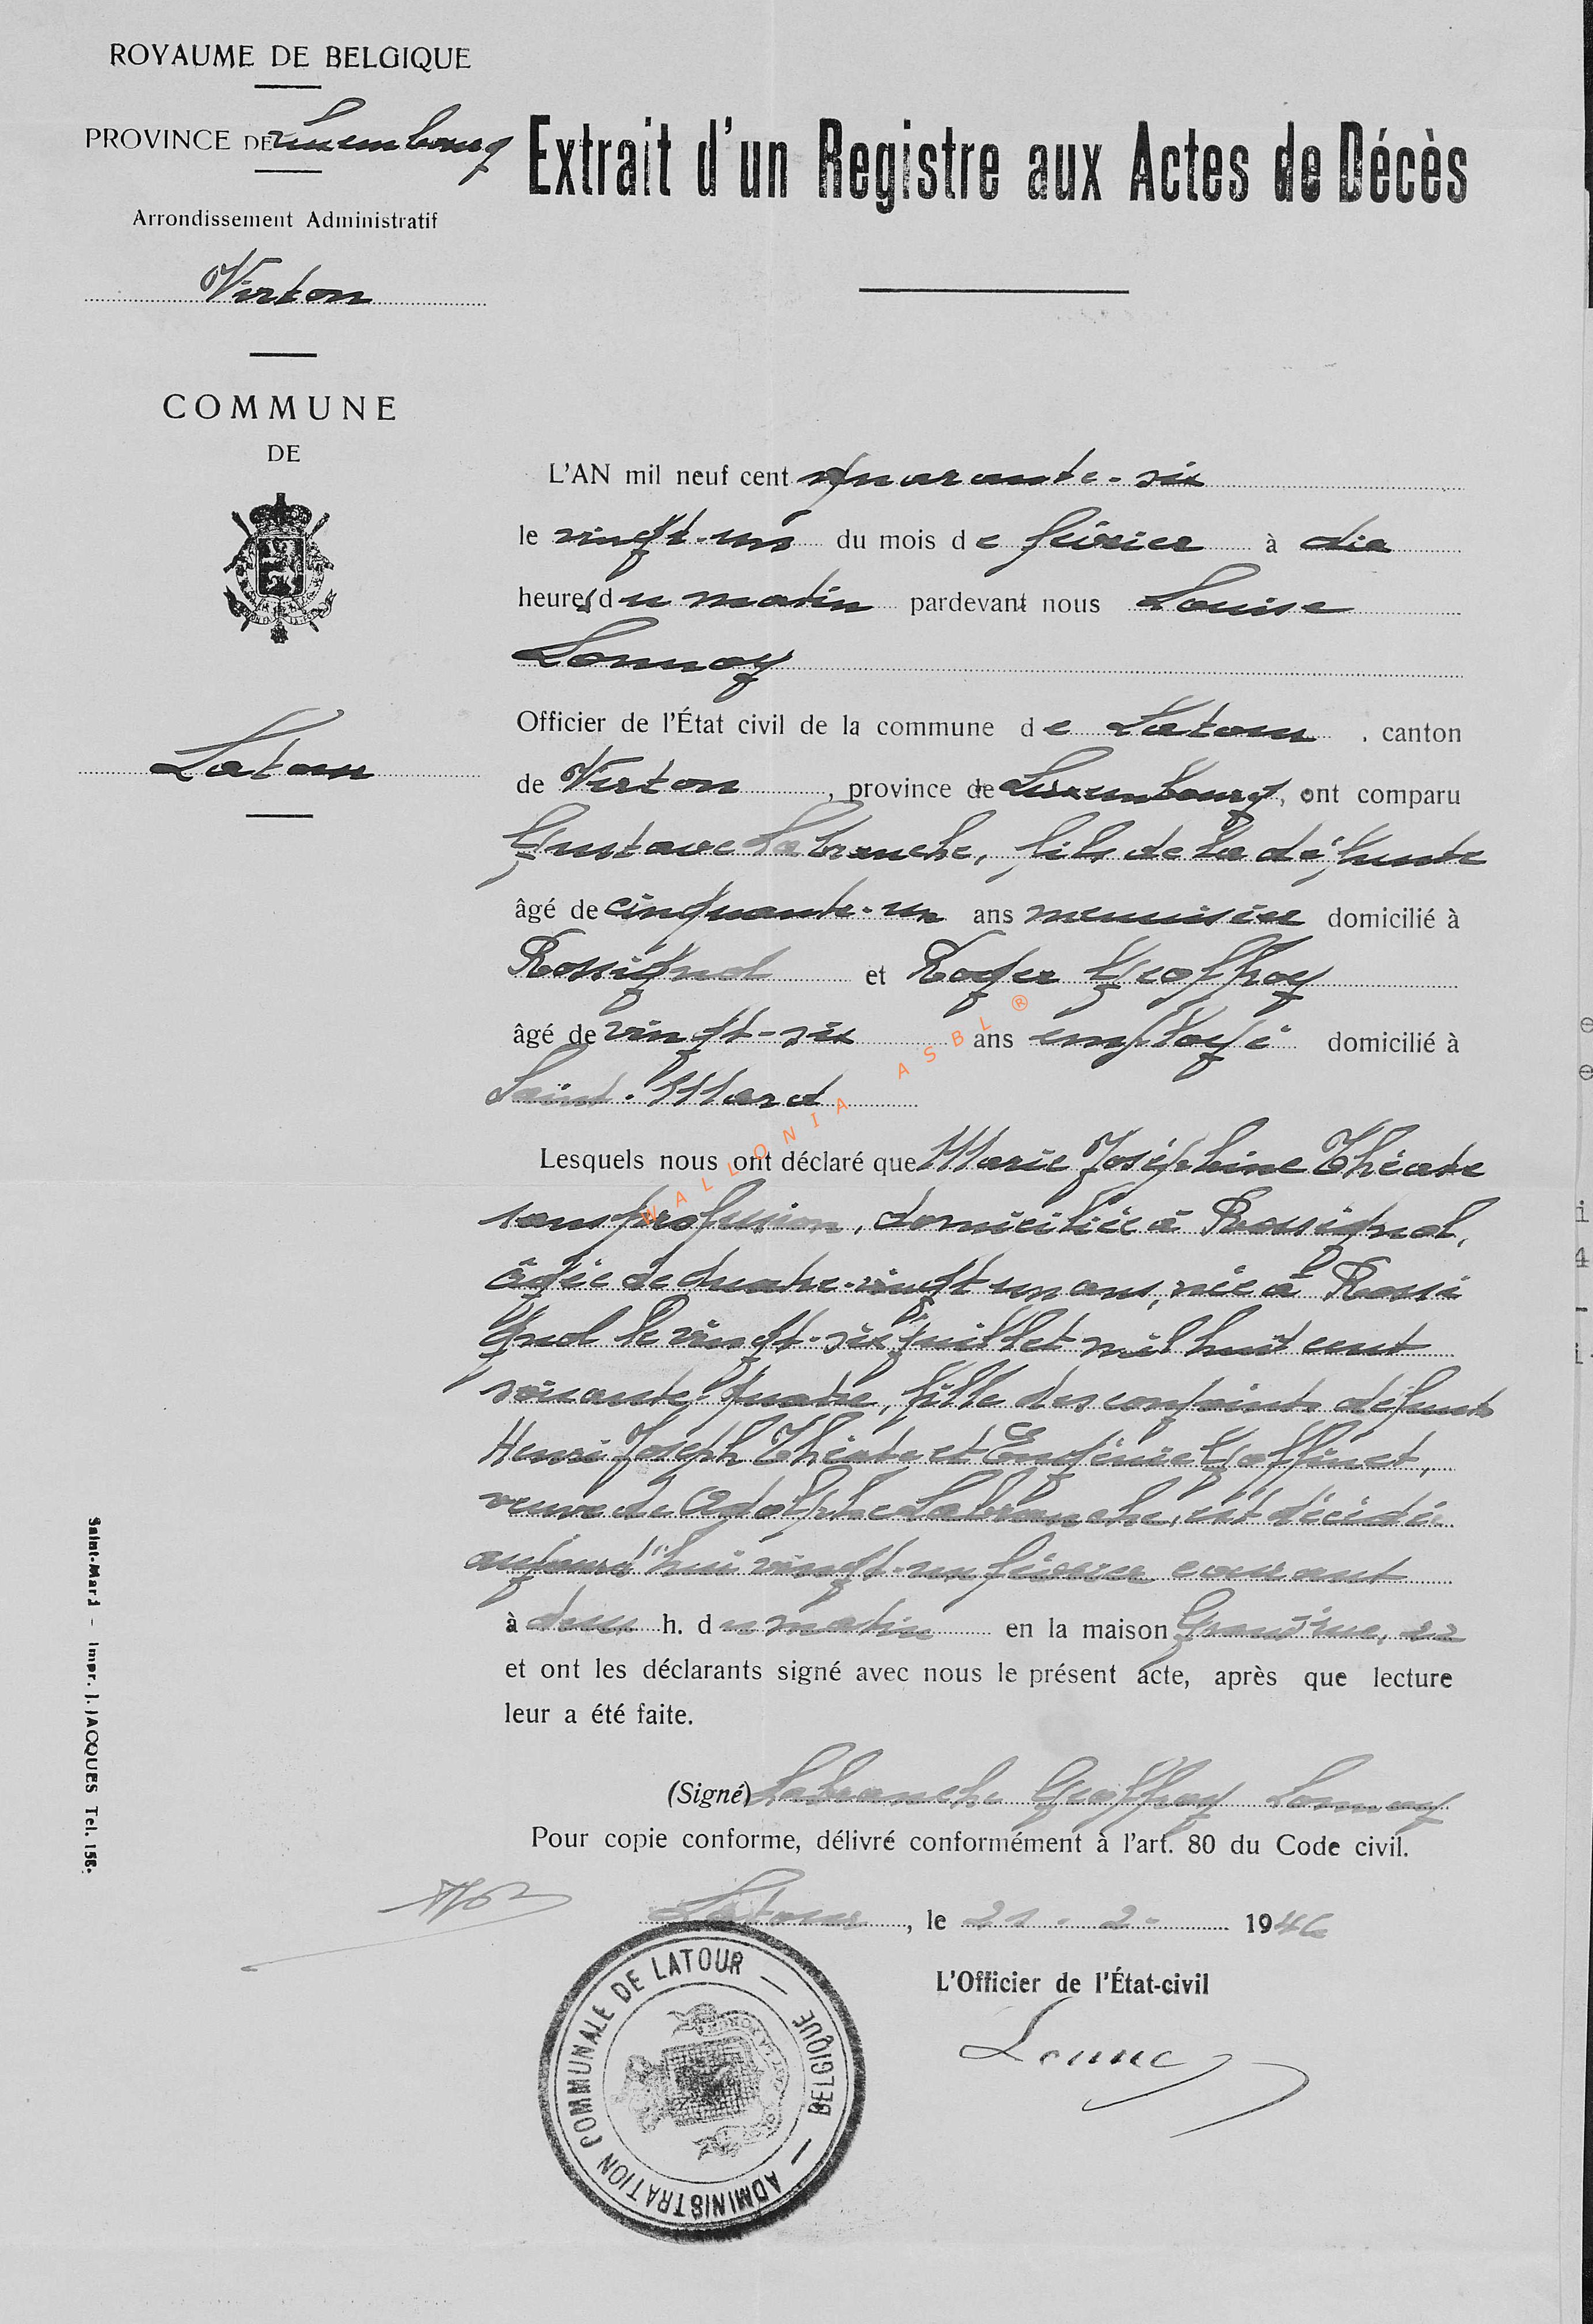 ROYAUME DE BELGIQUE
PROVINCE DE Luxembourg
Extrait d'un Registre aux Actes de Décès
Arrondissement Administratif
Virton
COMMUNE
DE
Latour
L'AN mil neuf cent quarante-six
le vingt-un du mois de février à dix
heures du matin pardevant nous Louise
Lonnoy
Officier de l'État civil de la commune de Latour , canton
de Virton , province de Luxembourg, ont comparu
Gustave Labranche, fils de la défunte
âgé de cinquante-un ans menuisier domicilié à
Rossignol et Roger Geoffroy
âgé de vingt-six ans employé domicilié à
Saint-Mard
Lesquels nous ont déclaré que Marie Joséphine Théate
sans profession, domiciliée à Rossignol,
âgée de quatre-vingt un ans, née à Rossi
gnol le vingt-six juillet mil huit cent
soixante quatre, fille des conjoints défunts
Henri Joseph Théate et Eugénie Goffinet,
veuve de Adolphe Labranche, est décédée
aujourd'hui vingt-un février courant
à deux h. du matin en la maison Grand'rue, 22
et ont les déclarants signé avec nous le présent acte, après que lecture
leur a été faite.
(Signé) Labranche Geoffroy Lonnoy
Pour copie conforme, délivré conformément à l'art. 80 du Code civil.
Latour, le 21-2-1946
L'Officier de l'État-civil
Lonnoy
ADMINISTRATION COMMUNALE DE LATOUR — BELGIQUE —
Saint-Mard - Impr. J. JACQUES Tel. 158.
WALLONIA ASBL ®